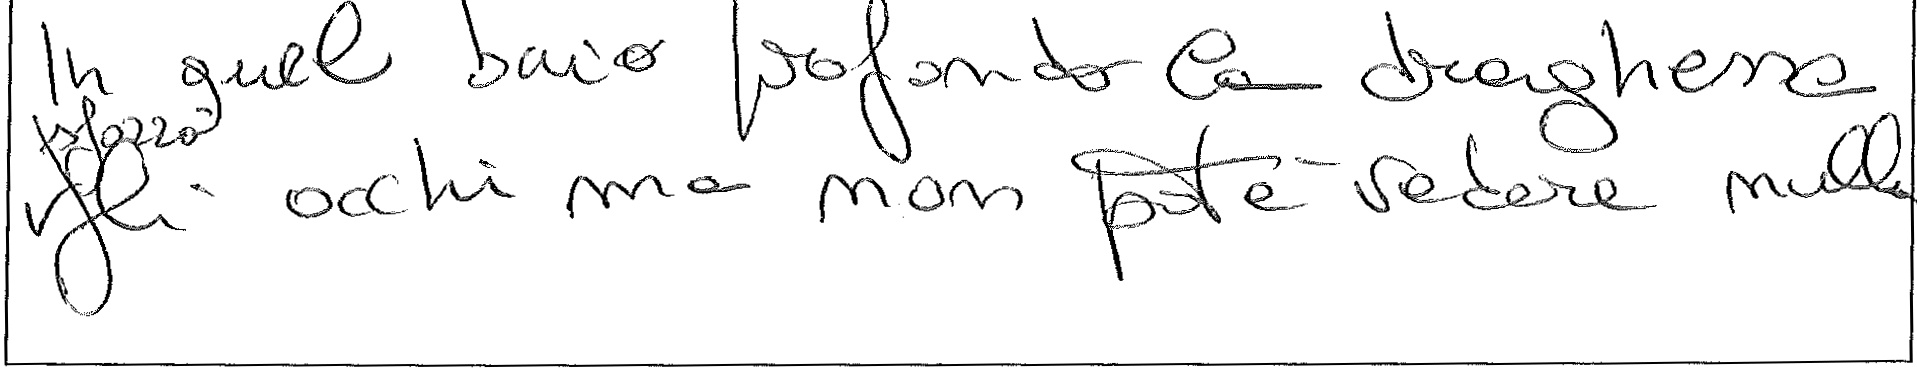 In quel buio profondo la draghessa
sforzò
gli occhi ma non poté vedere nulla